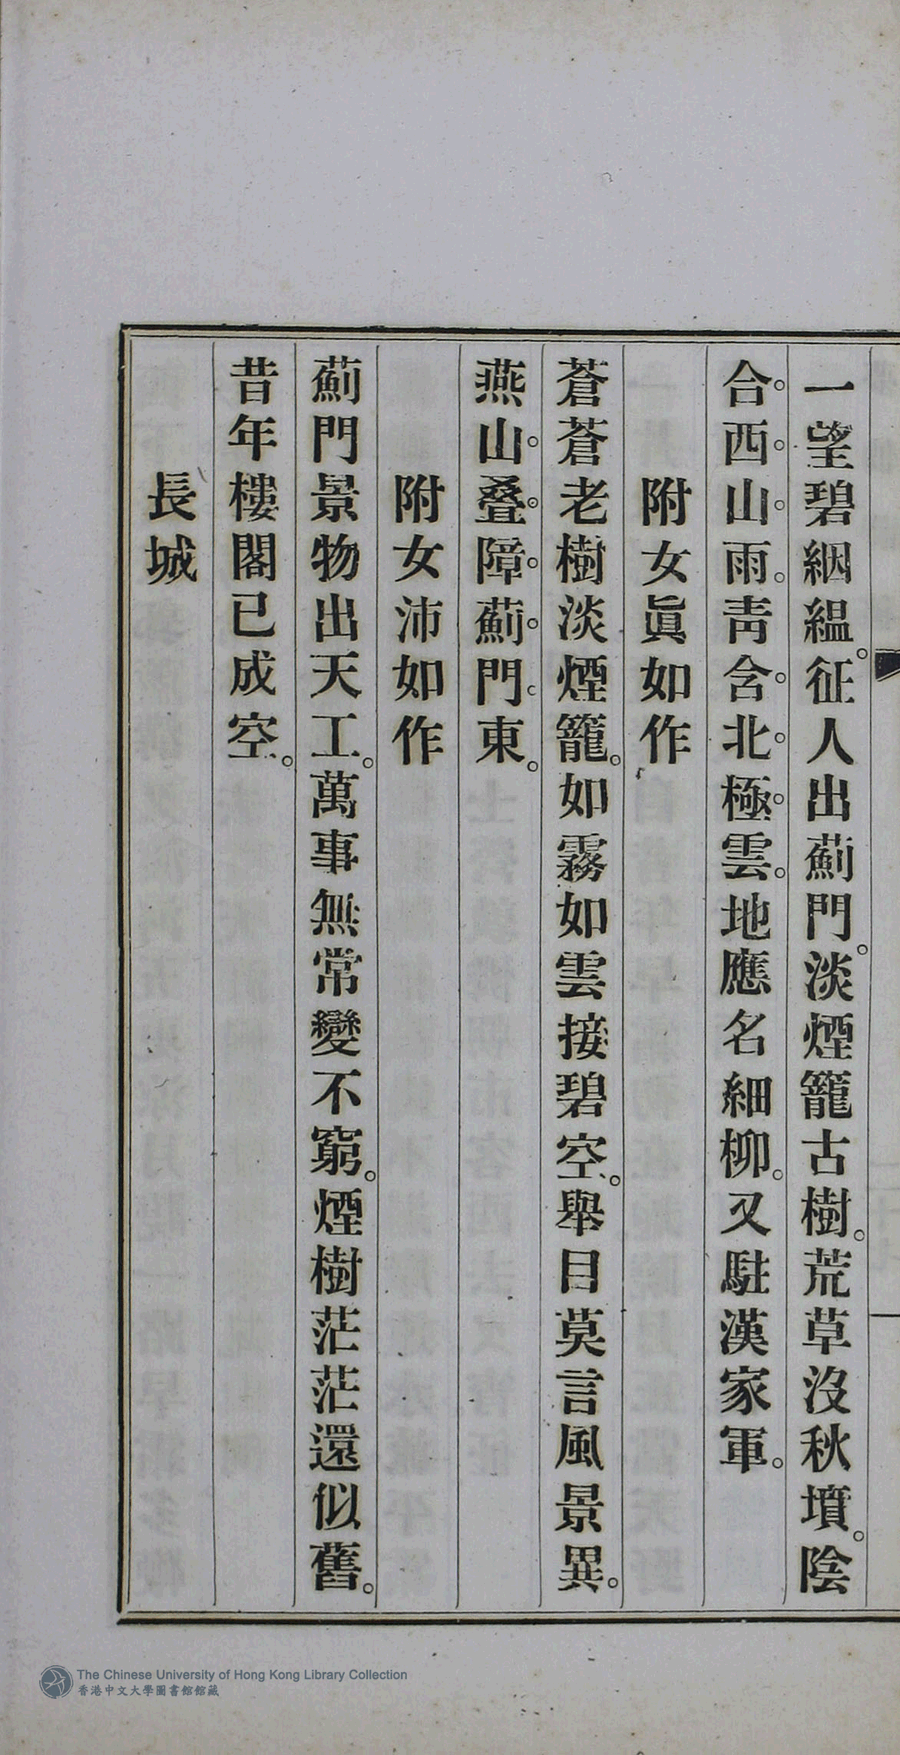 一望碧絪縕。征人出薊門。淡煙籠古樹。荒草沒秋墳。陰
合西山雨。靑含北極雲。地應名細柳。又駐漢家軍。
附女眞如作
蒼蒼老樹淡煙籠。如霧如雲接碧空。舉目莫言風景異。
燕山叠障薊門東。
附女沛如作
薊門景物出天工。萬事無常變不窮。煙樹茫茫還似舊。
昔年樓閣已成空。
長城
The Chinese University of Hong Kong Library Collection
香港中文大學圖書館館藏